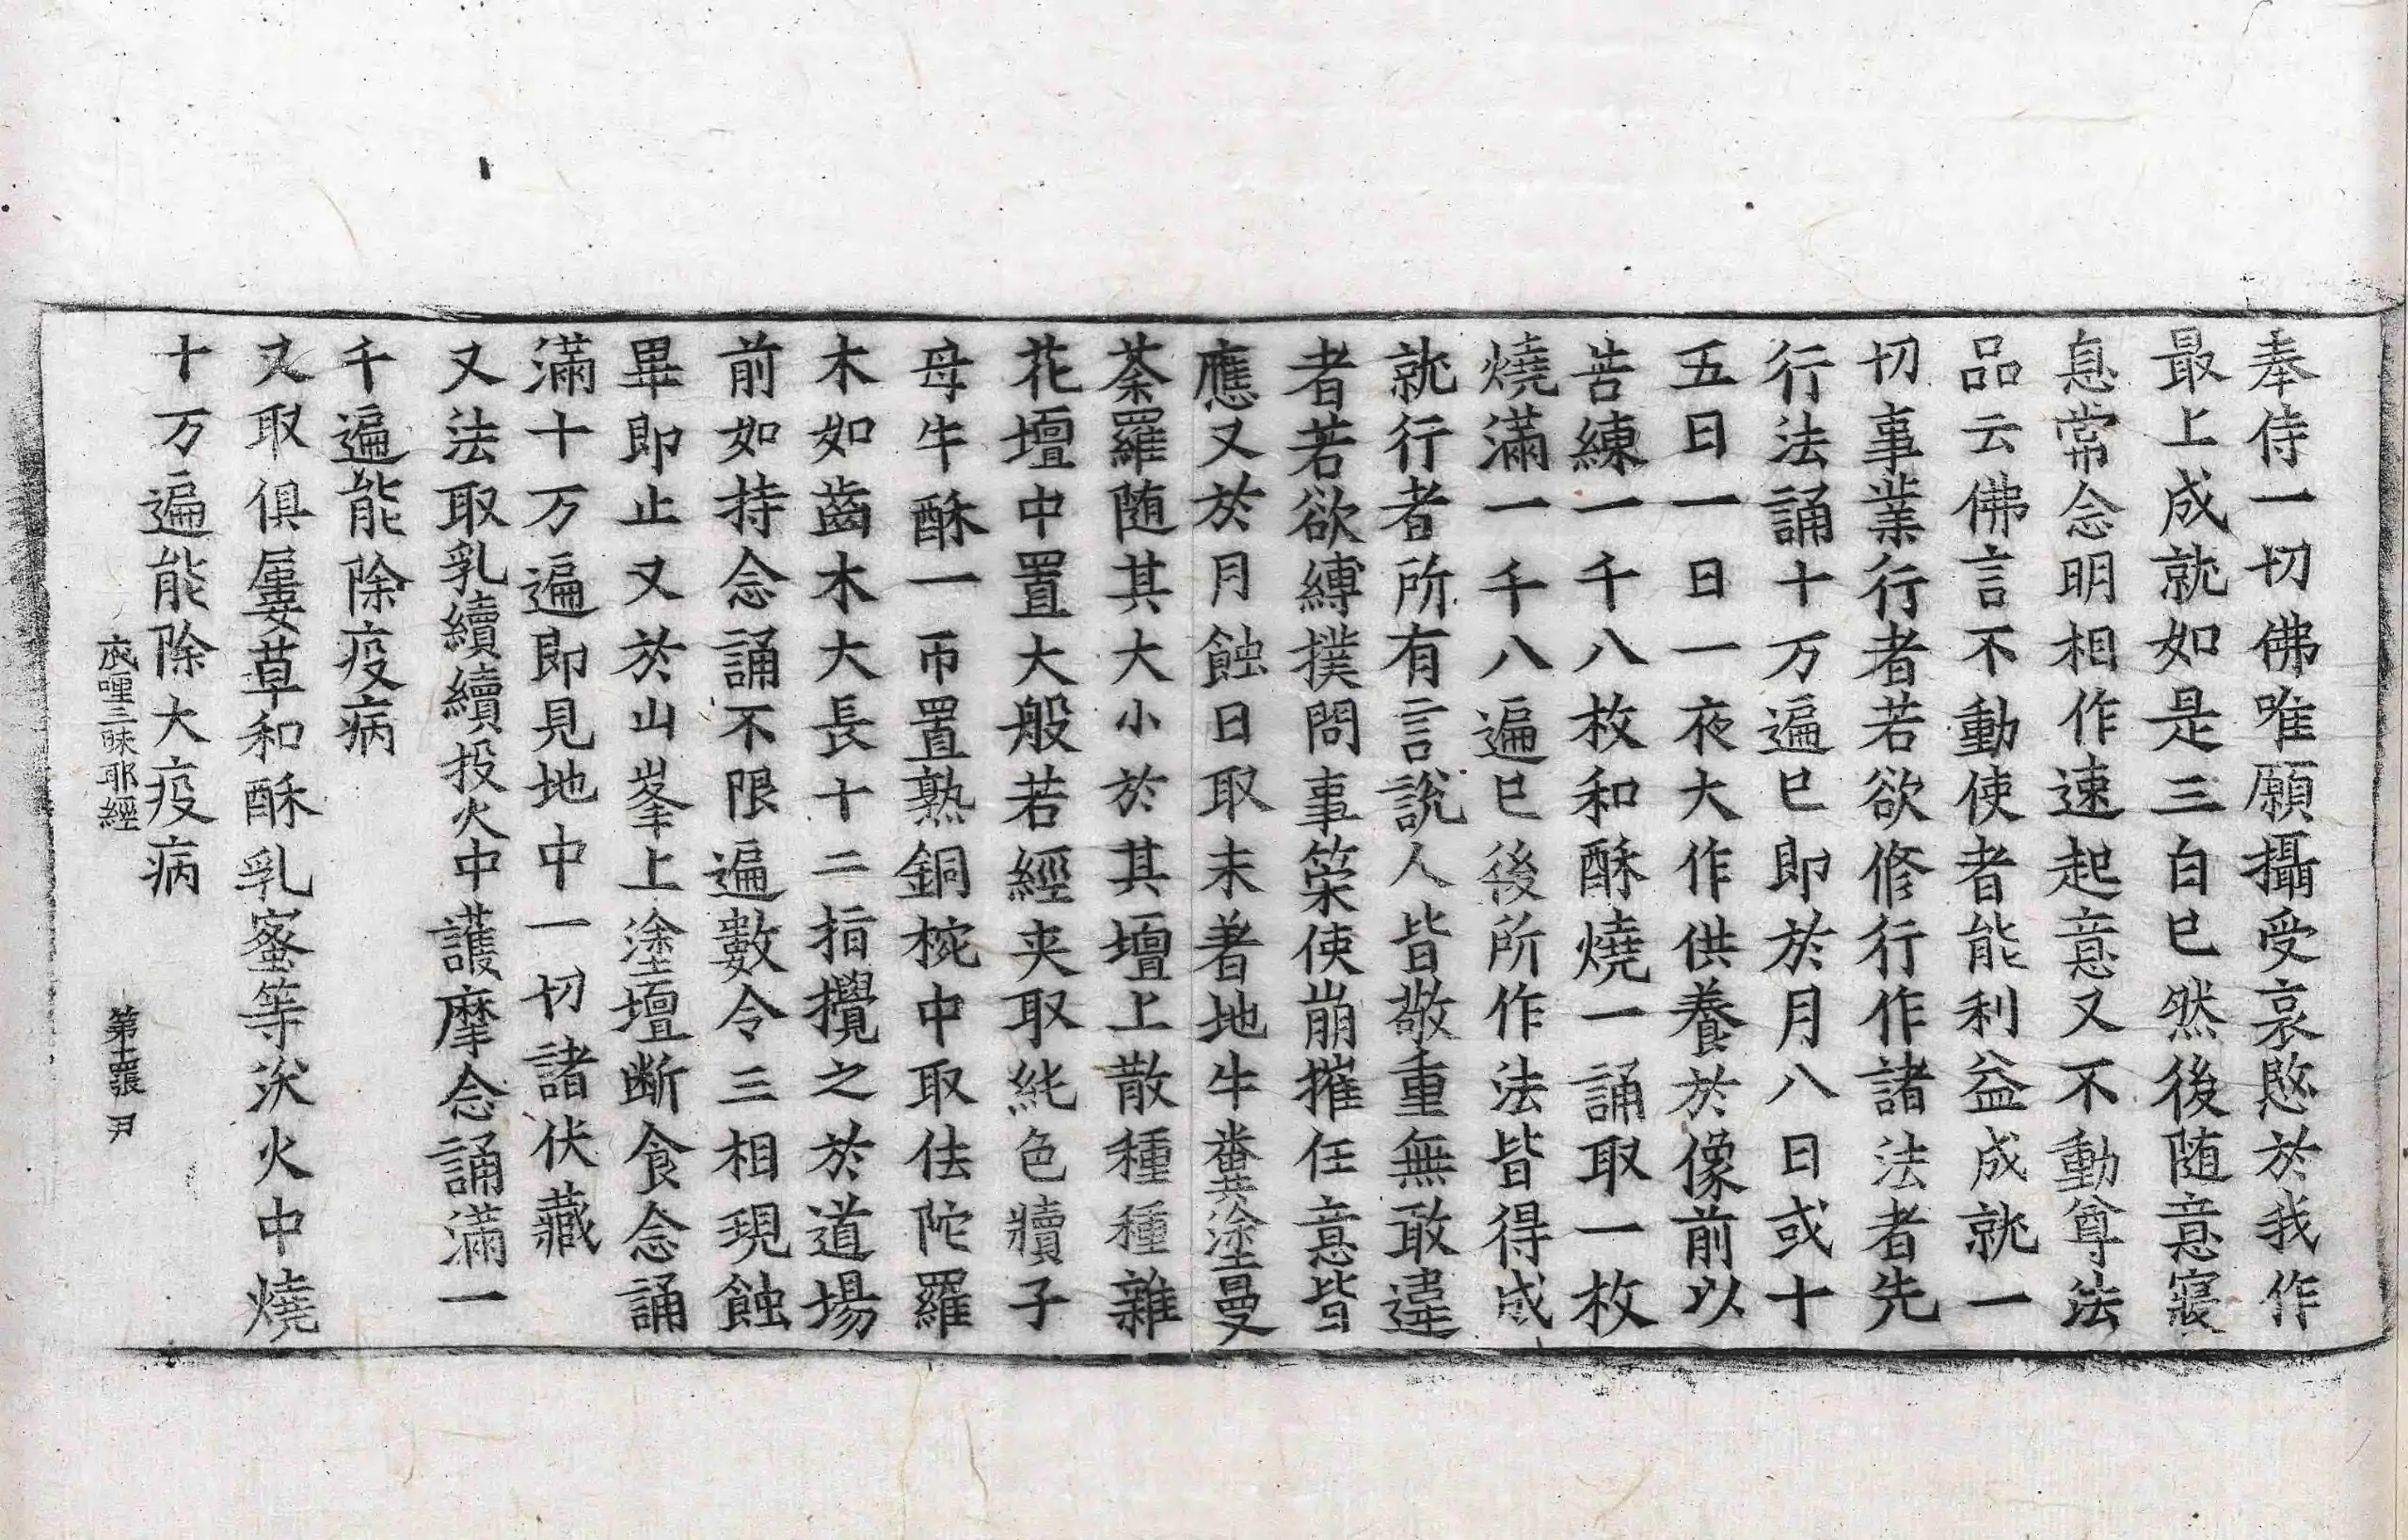 奉侍一切佛唯願攝受哀愍於我作
最上成就如是三白已然後随意寢
息常念明相作速起意又不動尊法
品云佛言不動使者能利益成就一
切事業行者若欲修行作諸法者先
行法誦十万遍已即於月八日或十
五日一日一夜大作供養於像前以
苦練一千八枚和酥燒一誦取一枚
燒滿一千八遍已後所作法皆得成
就行者所有言說人皆敬重無敢違
者若欲縛撲問事築使崩摧任意皆
應又於月蝕日取未著地牛糞塗曼
荼羅随其大小於其壇上散種種雜
花壇中置大般若經夹取純色犢子
母牛酥一帀置熟銅椀中取佉陀羅
木如齒木大長十二指攪之於道場
前如持念誦不限遍數令三相現蝕
畢即止又於山峯上塗壇断食念誦
滿十万遍即見地中一切諸伏藏
又法取乳續續投火中護摩念誦滿一
千遍能除疫病
又取俱屢草和酥乳蜜等於火中燒
十万遍能除大疫病
底哩三昧耶經 第十四張 尹